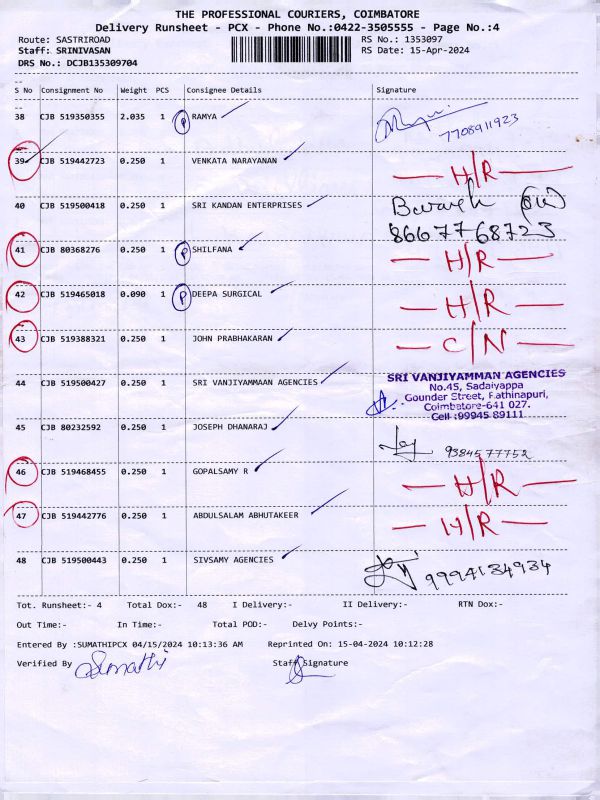 THE PROFESSIONAL COURIERS, COIMBATORE
Delivery Runsheet - PCX - Phone No.:0422-3505555 - Page No.:4
Route: SASTRIROAD RS No.: 1353097
Staff: SRINIVASAN RS Date: 15-Apr-2024
DRS No.: DCJB135309704
S No Consignment No Weight PCS Consignee Details Signature
38 CJB 519350355 2.035 1 P RAMYA
7708911923
39 CJB 519442723 0.250 1 VENKATA NARAYANAN H/R
40 CJB 519500418 0.250 1 SRI KANDAN ENTERPRISES
8667768723
41 CJB 80368276 0.250 1 P SHILFANA H/R
42 CJB 519465018 0.090 1 P DEEPA SURGICAL H/R
43 CJB 519388321 0.250 1 JOHN PRABHAKARAN C/N
44 CJB 519500427 0.250 1 SRI VANJIYAMMAAN AGENCIES SRI VANJIYAMMAN AGENCIES
No.45, Sadaiyappa
Gounder Street, Rathinapuri,
Coimbatore-641 027.
Cell :99945 89111
45 CJB 80232592 0.250 1 JOSEPH DHANARAJ
9384577752
46 CJB 519468455 0.250 1 GOPALSAMY R H/R
47 CJB 519442776 0.250 1 ABDULSALAM ABHUTAKEER H/R
48 CJB 519500443 0.250 1 SIVSAMY AGENCIES 9994134934
Tot. Runsheet:- 4 Total Dox:- 48 I Delivery:- II Delivery:- RTN Dox:-
Out Time:- In Time:- Total POD:- Delvy Points:-
Entered By :SUMATHIPCX 04/15/2024 10:13:36 AM Reprinted On: 15-04-2024 10:12:28
Verified By Sumathi Staff Signature